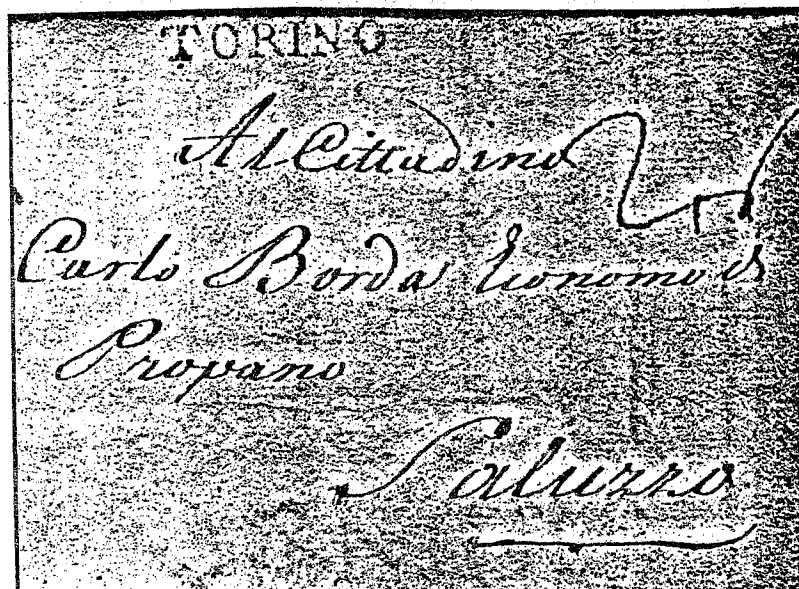 TORINO
Al Cittadino
Carlo Borda Economo di
Propano
Saluzzo